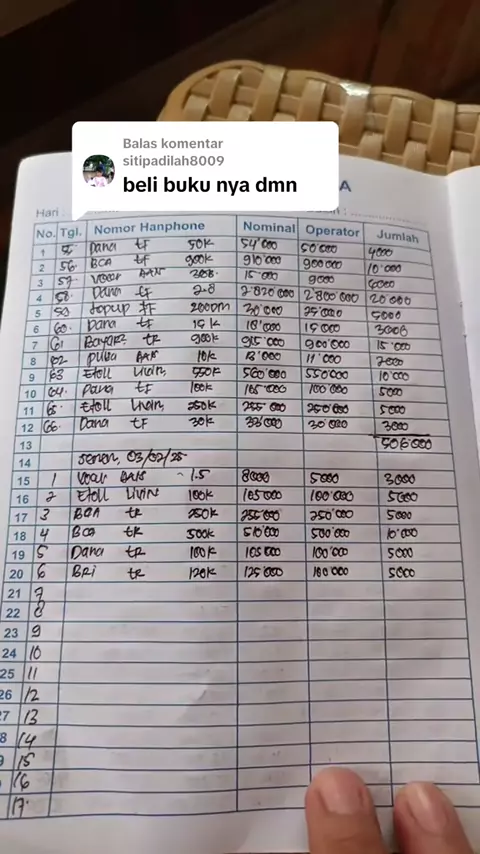 Balas komentar
sitipadilah8009
beli buku nya dmn
A
Hari :
No. Tgl. Nomor Hanphone Nominal Operator Jumlah
1 55 Dana tf 50k 54'000 50'000 4000
2 56. BCA tf 900k 910'000 900'000 10'000
3 57. 15'000 9000 6000
4 58. Dana tf 2.8 2'820'000 2'800'000 20'000
5 59 topup FF 200DM 30'000 25'000 5000
6 60. Dana tf 15k 18'000 15'000 3000
7 61 tr 900k 915'000 900'000 15'000
8 62 10k 13'000 11'000 2000
9 63 Etoll Livin, 550k 560'000 550'000 10'000
10 64. Dana tf 100k 105'000 100'000 5000
11 65. Etoll Livin, 250k 255'000 250'000 5000
12 66. Dana tf 30k 33'000 30'000 3000
13 506'000
14 senen, 03/02/25
15 1 1.5 8000 5000 3000
16 2 Etoll Livin 100k 105'000 100'000 5000
17 3 BCA tr 250k 255'000 250'000 5000
18 4 BCA tr 500k 510'000 500'000 10'000
19 5 Dana tr 100k 105'000 100'000 5000
20 6 BRI tr 120k 125'000 5000
21 7
22 8
23 9
24 10
25 11
26 12
27 13
14
15
16
17.